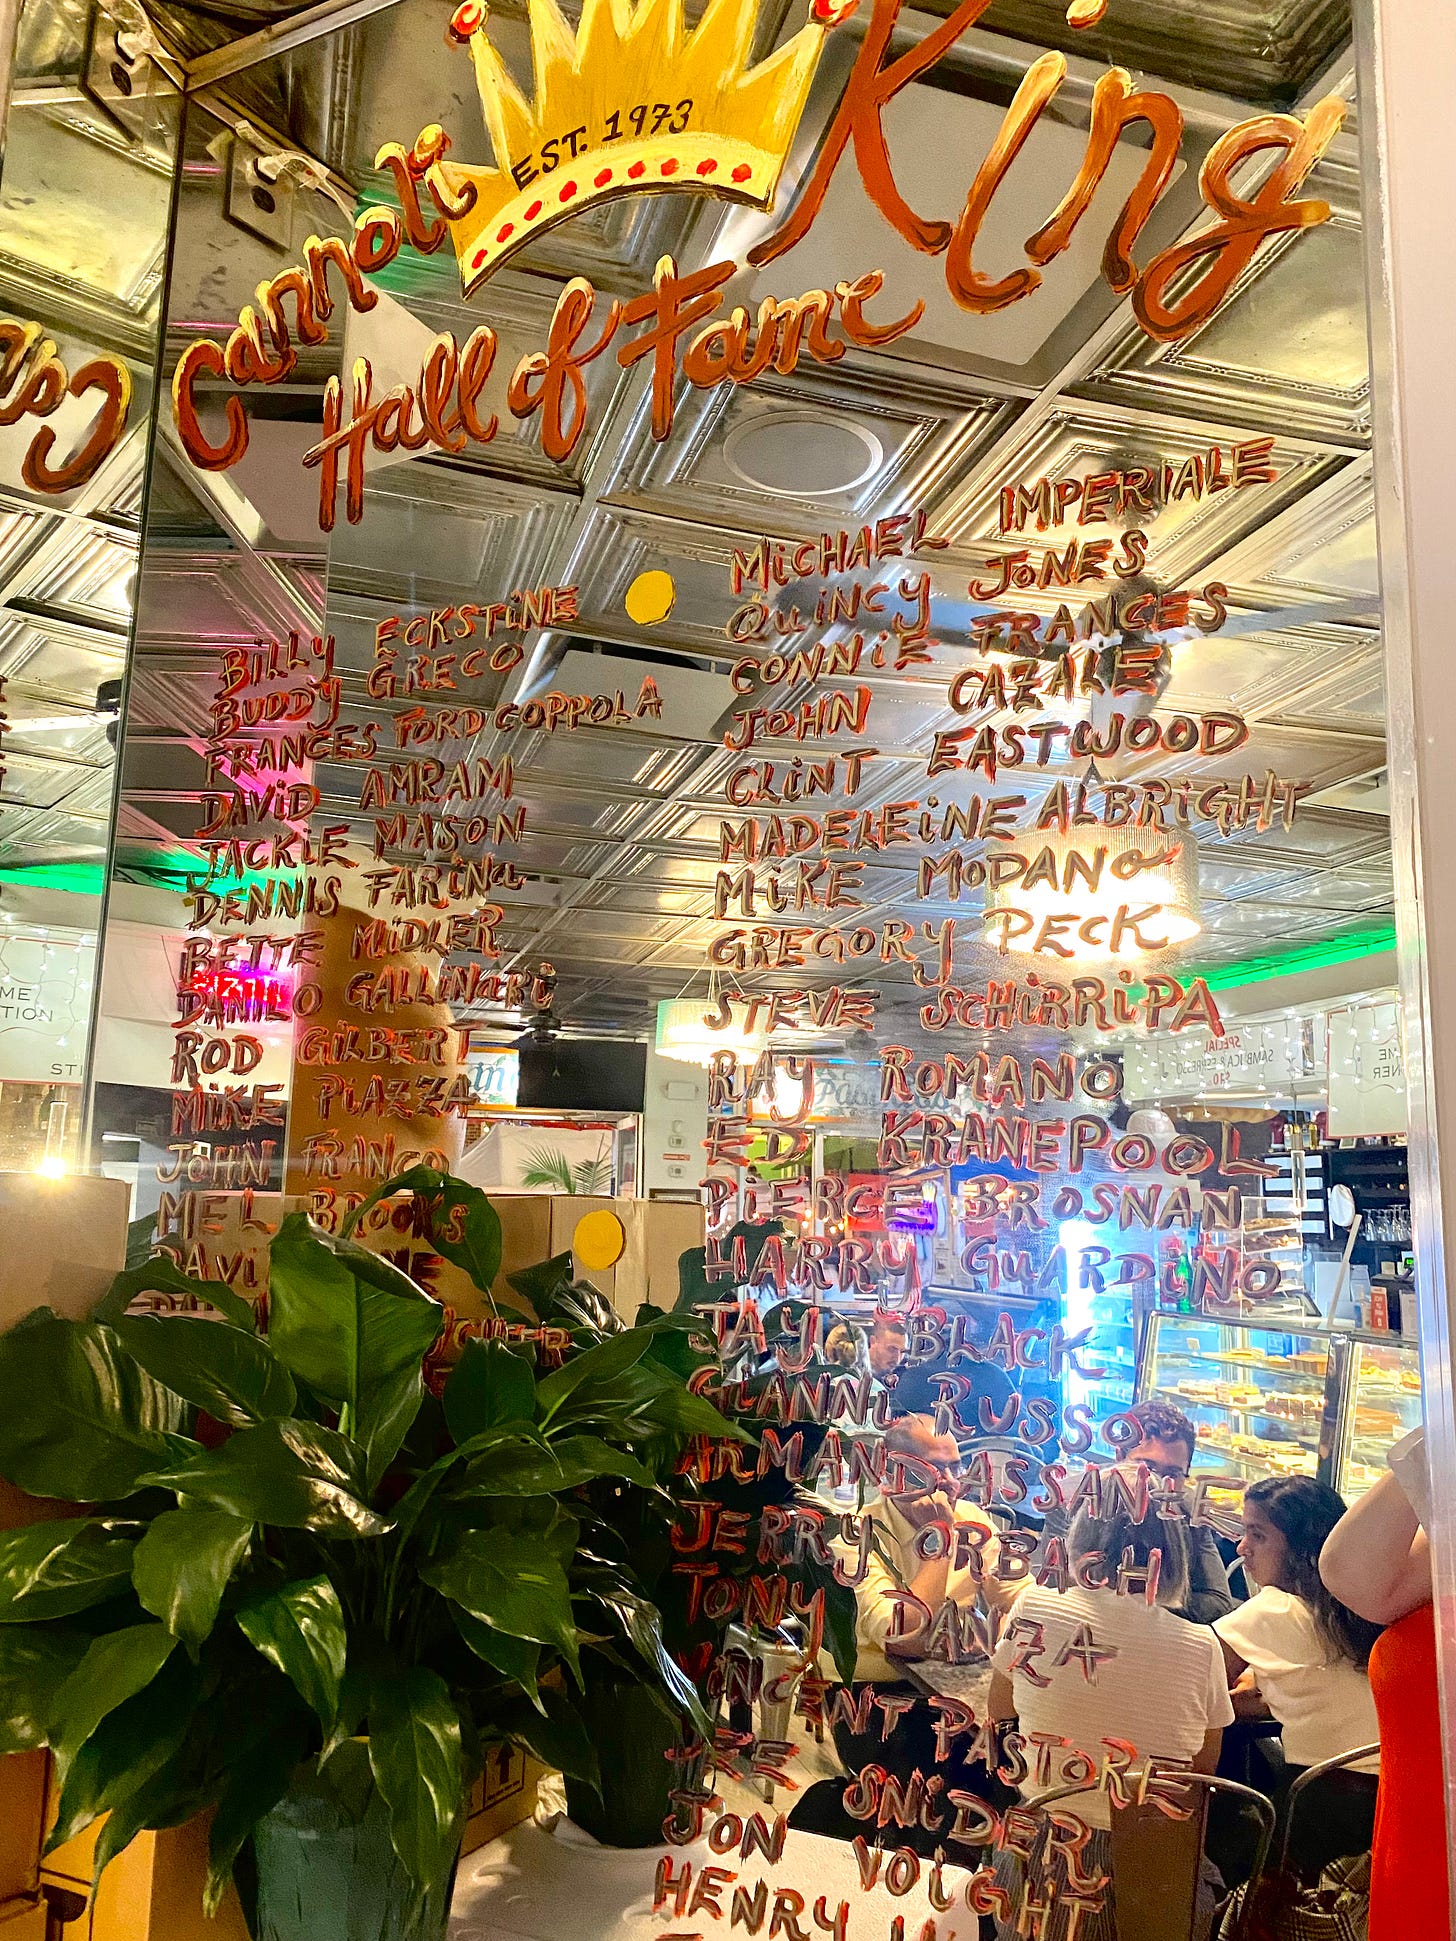 EST. 1973
Cannoli King
Hall of Fame
BILLY ECKSTINE
BUDDY GRECO
FRANCES FORD COPPOLA
DAVID AMRAM
JACKIE MASON
DENNIS FARINA
BETTE MIDLER
DANILO GALLINARI
ROD GILBERT
MIKE PIAZZA
JOHN FRANCO
MEL BROOKS
MICHAEL IMPERIALE
QUINCY JONES
CONNIE FRANCES
JOHN CAZALE
CLINT EASTWOOD
MADELEINE ALBRIGHT
MIKE MODANO
GREGORY PECK
STEVE SCHIRRIPA
RAY ROMANO
ED KRANEPOOL
PIERCE BROSNAN
HARRY GUARDINO
JAY BLACK
GIANNI RUSSO
ARMAND ASSANTE
JERRY ORBACH
TONY DANZA
VINCENT PASTORE
SNIDER
JON VOIGHT
HENRY
SPECIAL
SAMBUCA & ESPRESSO
$10